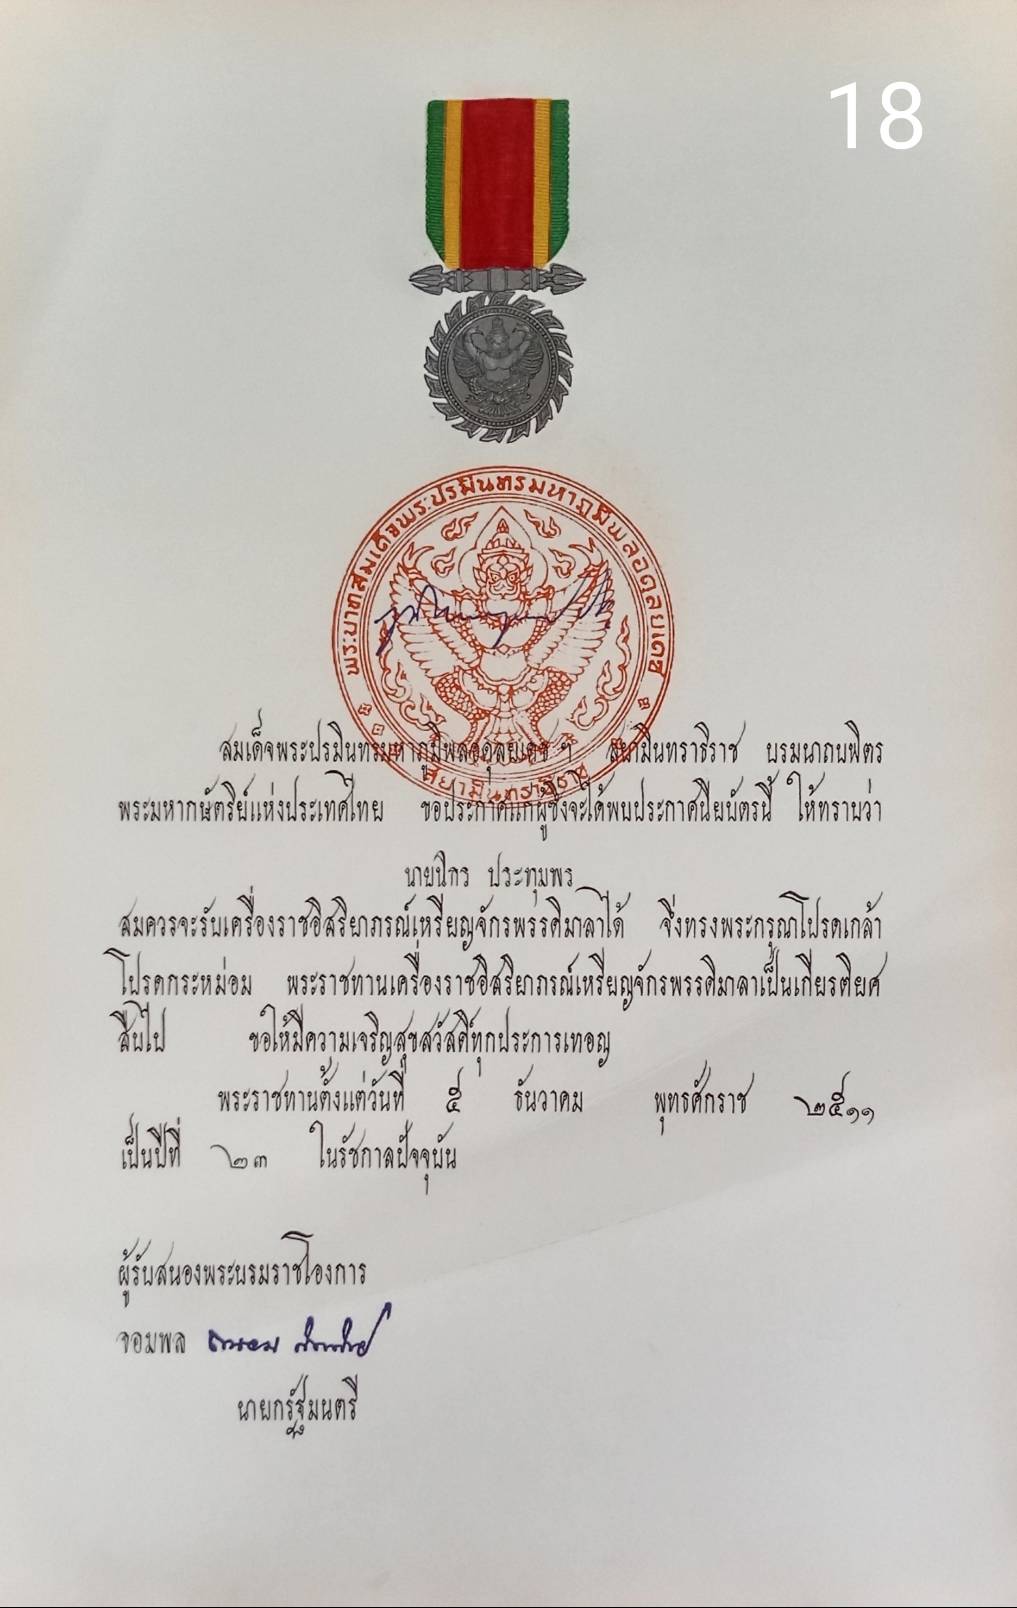 18
พระบาทสมเด็จพระปรมินทรมหาภูมิพลอดุลยเดช
สยามินทราธิราช
สมเด็จพระปรมินทรมหาภูมิพลอดุลยเดช ฯ สยามินทราธิราช บรมนาถบพิตร
พระมหากษัตริย์แห่งประเทศไทย ขอประกาศแก่ผู้ซึ่งจะได้พบประกาศนียบัตรนี้ ให้ทราบว่า
นายนิกร ประทุมพร
สมควรจะรับเครื่องราชอิสริยาภรณ์เหรียญจักรพรรดิมาลาได้ จึ่งทรงพระกรุณาโปรดเกล้า
โปรดกระหม่อม พระราชทานเครื่องราชอิสริยาภรณ์เหรียญจักรพรรดิมาลาเป็นเกียรติยศ
สืบไป ขอให้มีความเจริญสุขสวัสดิ์ทุกประการเทอญ
พระราชทานตั้งแต่วันที่ ๕ ธันวาคม พุทธศักราช ๒๕๑๑
เป็นปีที่ ๒๓ ในรัชกาลปัจจุบัน
ผู้รับสนองพระบรมราชโองการ
จอมพล
นายกรัฐมนตรี